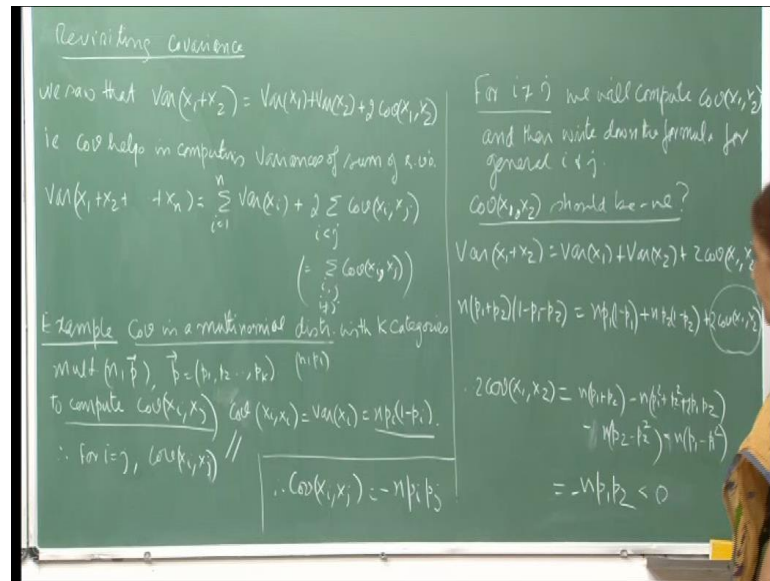 Revisiting Covariance
We saw that Var(X₁+X₂) = Var(X₁)+Var(X₂)+2 Cov(X₁,X₂)
ie Cov helps in computing Variances of sum of r.v.s
Var(X₁+X₂+ +Xₙ) = Σ_{i=1}^{n} Var(Xᵢ) + 2 Σ_{i<j} Cov(Xᵢ,Xⱼ)
(= Σ_{i,j i≠j} Cov(Xᵢ,Xⱼ))
Example Cov in a multinomial distr. with K categories
mult (n,p⃗), p⃗=(p₁,p₂ ..,pₖ) (n,pᵢ)
to compute Cov(Xᵢ,Xⱼ) Cov(Xᵢ,Xᵢ) = Var(Xᵢ) = npᵢ(1-pᵢ).
∴ For i=j, Cov(Xᵢ,Xⱼ) //
∴ Cov(Xᵢ,Xⱼ) = -npᵢpⱼ
For i≠j we will compute Cov(X₁,X₂)
and then write down the formula for
general i & j.
Cov(X₁,X₂) should be -ve?
Var(X₁+X₂) = Var(X₁)+Var(X₂)+ 2Cov(X₁,X₂
n(p₁+p₂)(1-p₁-p₂) = np₁(1-p₁)+np₂(1-p₂)+2Cov(X₁,X₂)
∴ 2Cov(X₁,X₂) = n(p₁+p₂) - n(p₁²+p₂²+2p₁p₂)
- n(p₂-p₂²) - n(p₁-p₁²)
= -np₁p₂ < 0